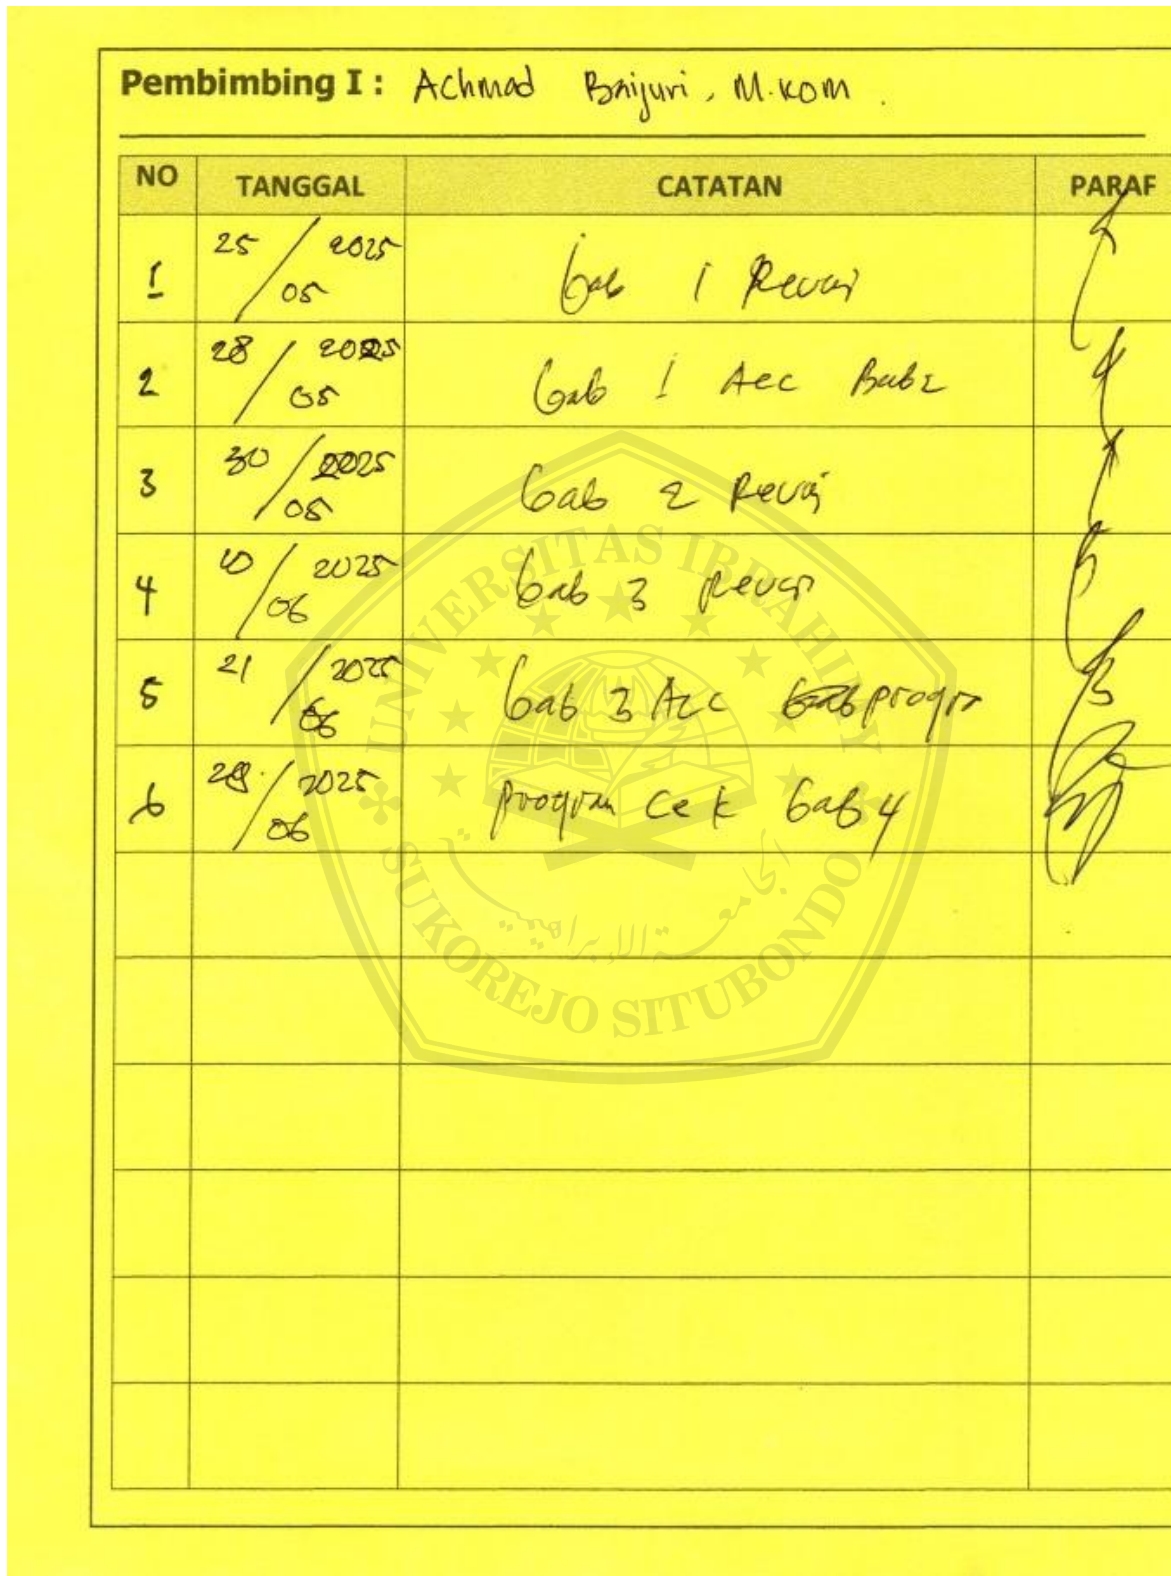 Pembimbing I : Achmad Baijuri, M.KOM.
NO TANGGAL CATATAN PARAF
1 25/05 2025 bab 1 Revisi
2 28/05 2025 bab 1 Acc Bab 2
3 30/05 2025 bab 2 Revisi
4 10/06 2025 bab 3 Revisi
5 21/06 2025 bab 3 Acc
6 28/06 2025 program cek bab 4
UNIVERSITAS IBRAHIMY
SUKOREJO SITUBONDO